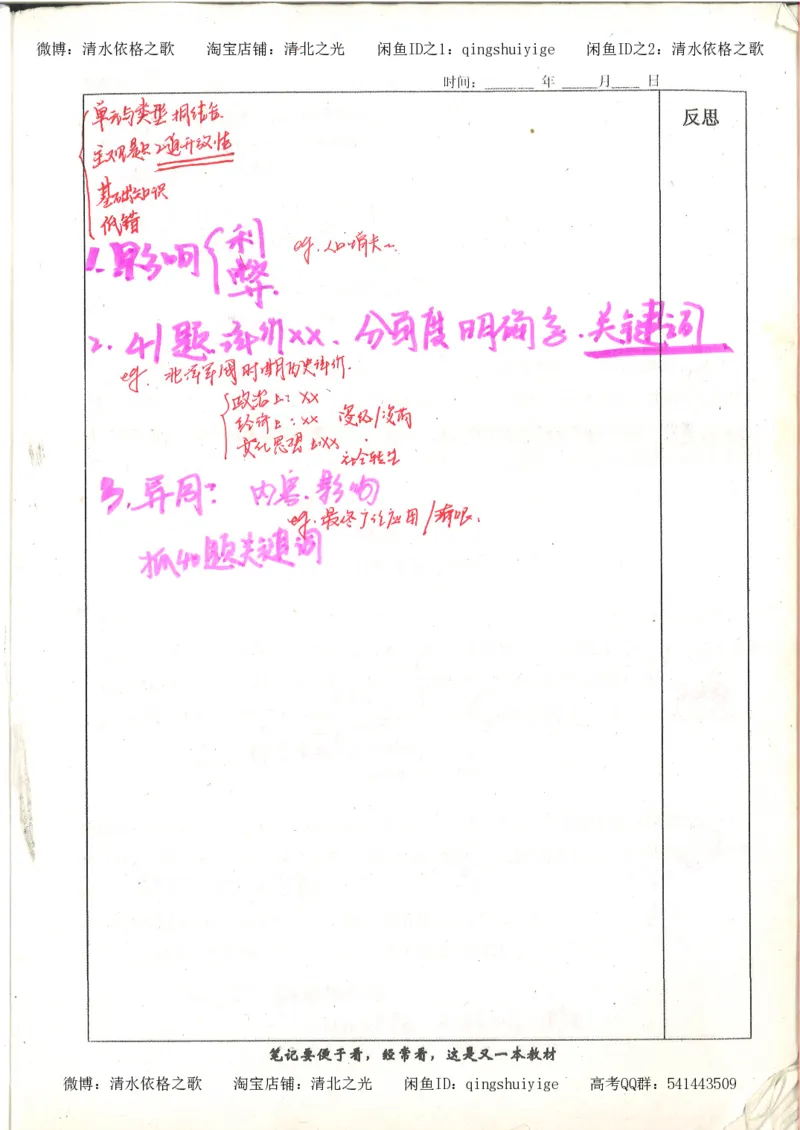 微博：清水依格之歌 淘宝店铺：清北之光 闲鱼ID之1：qingshuiyige 闲鱼ID之2：清水依格之歌
时间：______ 年 _____月____ 日
反思
单元与类型相结合
主观题2道开放性
基础知识
低错
1.影响{利 弊. eg.人口增长~
2.41题评价xx、分角度明确.关键词
eg. 北洋军阀时期历史评价.
政治上：xx
经济上：xx
文化思想上:xx
社会转型
3.异同：内容.影响
eg.最终
抓41题关键词
笔记要便于看，经常看，这是又一本教材
微博：清水依格之歌 淘宝店铺：清北之光 闲鱼ID：qingshuiyige 高考QQ群：541443509